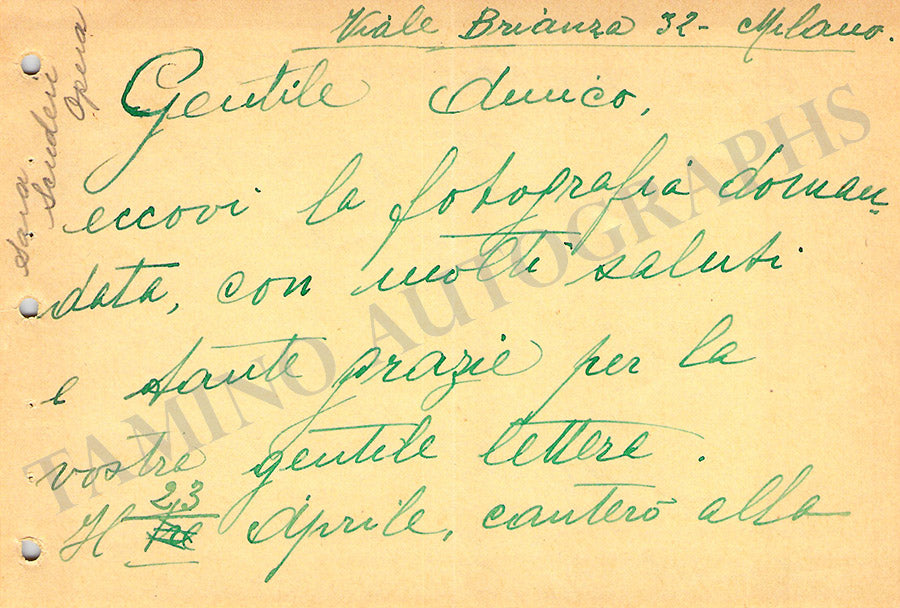 Viale Brianza 32 - Milano.
Sara Scuderi
Opera
Gentile Amico,
eccovi la fotografia doman-
data, con molti saluti
e tante grazie per la
vostra gentile lettera.
Il 23
Aprile, canterò alla
TAMINO AUTOGRAPHS